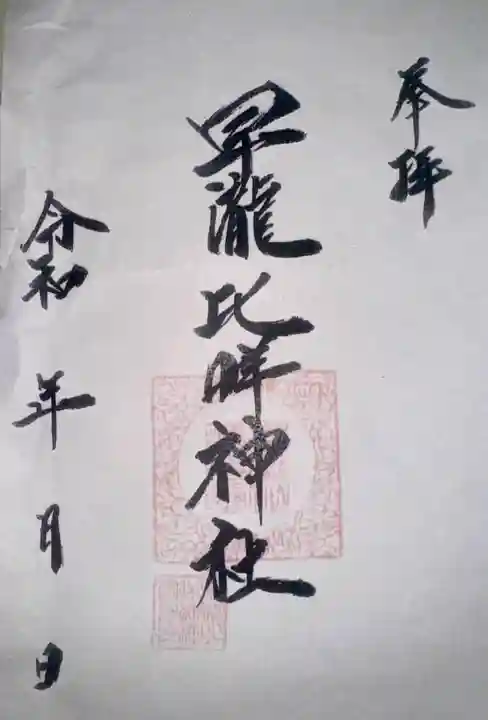 奉拝
早瀧比咩神社
令和 年 月 日